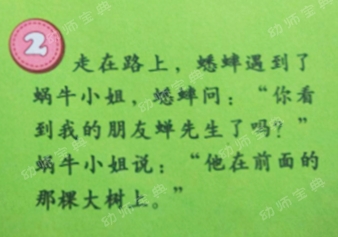 2
走在路上，蟋蟀遇到了
蜗牛小姐，蟋蟀问：“你看
到我的朋友蝉先生了吗？”
蜗牛小姐说：“他在前面的
那棵大树上。”
幼师宝典
幼师宝典
幼师宝典
幼师宝典
幼师宝典